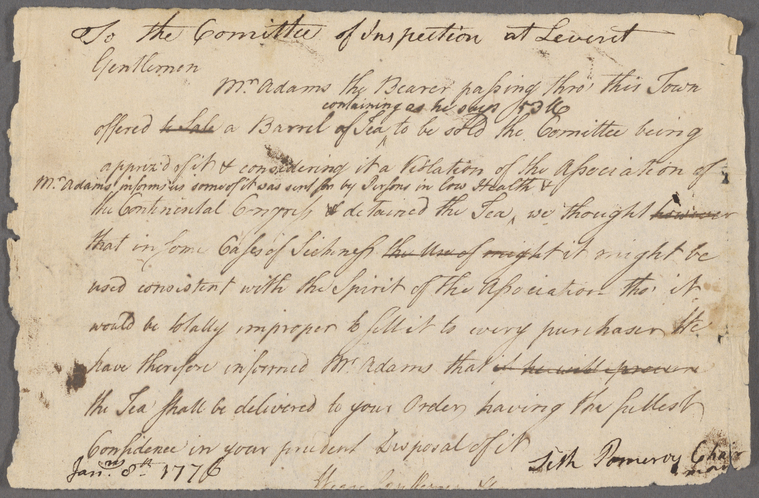 To the Comittee of Inspection at Leveret
Gentlemen
Mr. Adams the Bearer passing thro' this Town
containing as he says 53 lb
offered to Sale a Barrel of Tea, to be sold the Comittee being
appriz'd of it & considering it a Violation of the Association of
Mr. Adams informs us some of it was sent for by Persons in low Health &
the Continental Congress & detained the Tea, we thought however
that in some Cases of Sickness the Use of might it might be
used consistent with the Spirit of the Association tho' it
would be totally improper to sell it to every purchaser We
have therefore informed Mr. Adams that
the Tea shall be delivered to your Order, having the fullest
Confidence in your prudent Disposal of it
Seth Pomeroy Chairman
Jany. 8th. 1776